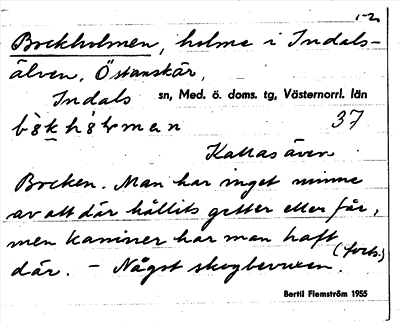 1-2
Bockholmen, holme i Indals-
älven, Östanskär,
Indals sn, Med. ö. doms. tg, Västernorrl. län
37
Kallas även
Bocken. Man har inget minne
av att där hållits getter eller får,
men kaniner har man haft
där. – Något skogbevuxen. (forts.)
Bertil Flemström 1955